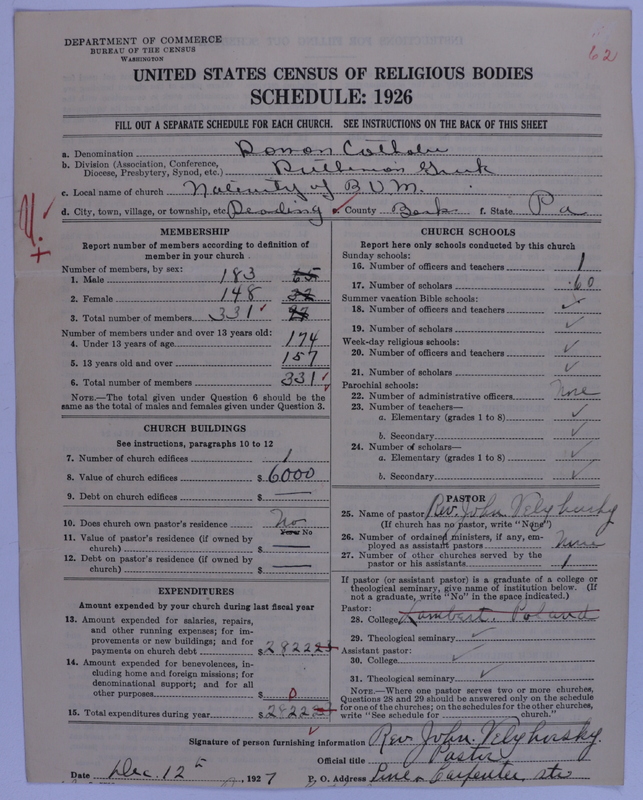 DEPARTMENT OF COMMERCE
BUREAU OF THE CENSUS
WASHINGTON
62
UNITED STATES CENSUS OF RELIGIOUS BODIES
SCHEDULE: 1926
FILL OUT A SEPARATE SCHEDULE FOR EACH CHURCH. SEE INSTRUCTIONS ON THE BACK OF THIS SHEET
a. Denomination Roman Catholic
b. Division (Association, Conference, Diocese, Presbytery, Synod, etc.) Ruthenian Greek
c. Local name of church Nativity of B.V.M.
d. City, town, village, or township, etc. Reading e. County Berks f. State Pa
MEMBERSHIP
Report number of members according to definition of
member in your church
Number of members, by sex:
1. Male 183 65
2. Female 148 32
3. Total number of members 331 97
Number of members under and over 13 years old:
4. Under 13 years of age 174
5. 13 years old and over 157
6. Total number of members 331
NOTE.—The total given under Question 6 should be the
same as the total of males and females given under Question 3.
CHURCH BUILDINGS
See instructions, paragraphs 10 to 12
7. Number of church edifices 1
8. Value of church edifices $ 6000
9. Debt on church edifices $ —
10. Does church own pastor's residence No
Yes or No
11. Value of pastor's residence (if owned by
church) $ —
12. Debt on pastor's residence (if owned by
church) $ —
EXPENDITURES
Amount expended by your church during last fiscal year
13. Amount expended for salaries, repairs,
and other running expenses; for im-
provements or new buildings; and for
payments on church debt $ 2822
14. Amount expended for benevolences, in-
cluding home and foreign missions; for
denominational support; and for all
other purposes $ 0
15. Total expenditures during year $ 2822
CHURCH SCHOOLS
Report here only schools conducted by this church
Sunday schools:
16. Number of officers and teachers 1
17. Number of scholars 60
Summer vacation Bible schools:
18. Number of officers and teachers
19. Number of scholars
Week-day religious schools:
20. Number of officers and teachers
21. Number of scholars
Parochial schools:
22. Number of administrative officers None
23. Number of teachers—
a. Elementary (grades 1 to 8)
b. Secondary
24. Number of scholars—
a. Elementary (grades 1 to 8)
b. Secondary
PASTOR
25. Name of pastor Rev. John Velyhorsky
(If church has no pastor, write "None")
26. Number of ordained ministers, if any, em-
ployed as assistant pastors None
27. Number of other churches served by the
pastor or his assistants 1
If pastor (or assistant pastor) is a graduate of a college or
theological seminary, give name of institution below. (If
not a graduate, write "No" in the space indicated.)
Pastor:
28. College Poland
29. Theological seminary
Assistant pastor:
30. College
31. Theological seminary
NOTE.—Where one pastor serves two or more churches,
Questions 28 and 29 should be answered only on the schedule
for one of the churches; on the schedules for the other churches,
write "See schedule for church."
Signature of person furnishing information Rev. John Velyhorsky
Official title Pastor
Date Dec. 12 , 1927 P. O. Address Pine & Carpenter sts